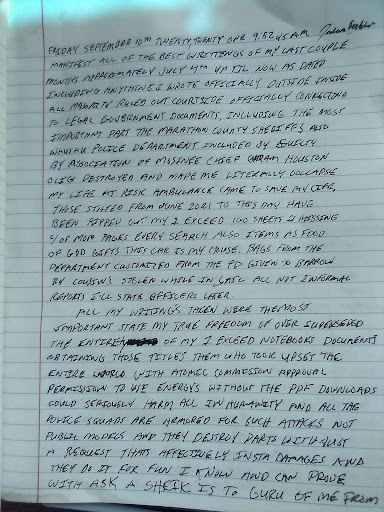 FRIDAY SEPTEMBER 10TH TWENTY, TWENTY ONE 9:52 AM
MANIFEST ALL OF THE BEST WRITTINGS OF MY LAST COUPLE
MONTHS APPROXIMATELY JULY 4TH UP TIL NOW AS DATED
INCLUDING ANYTHING I WROTE OFFICIALLY OUTSIDE INSIDE
ALL MAJORITY RULED OUT COURTSIDE OFFICIALLY CONNECTING
TO LEGAL GOVERNMENT DOCUMENTS, INCLUDING THE MOST
IMPORTANT PART THE MARATHON COUNTY SHERIFFS ALSO
WAUSAU POLICE DEPARTMENT INCLUDED BY GUILTY
BY ASSOCIATION OF MOSINEE CHIEF HOUSTON
DESTROYED AND MADE ME LITERALLY COLLAPSE
MY LIFE AT RISK AMBULANCE CAME TO SAVE MY LIFE,
THOSE STUFFED FROM JUNE 2021 TO THIS DAY HAVE
BEEN RIPPED OUT MY I EXCEED 100 SHEETS IS MISSING
4 OF MORE PAGES EVERY SEARCH ALSO ITEMS AS FOOD
OF GOD GIFTS THIS CAR IS MY HOUSE. BAGS FROM THE
DEPARTMENT CUSTOMIZED FROM THE PD GIVEN TO BARROW
BY COUSIN'S STOLEN WHILE IN ALL NOT INFORMAL
REPORTS I'LL STATE OFFICERS LATER
ALL MY WRITING'S THEN WERE THE MOST
IMPORTANT STATE MY TRUE FREEDOM OF OVER SUPERSEDED
THE ENTIRE OF MY I EXCEED NOTEBOOKS DOCUMENTS
OBTAINING THOSE TITLES THEM WHO TOOK UPSET THE
ENTIRE WORLD WITH ATOMIC COMMISSION APPROVAL
PERMISSION TO USE ENERGYS WITHOUT THE PDF DOWNLOADS
COULD SERIOUSLY HARM ALL IN HUMANITY AND ALL THE
POLICE SQUADS ARE ARMORED FOR SUCH ATTACKS NOT
PUBLIC MODELS AND THEY DESTROY PARTS WITH JUST
A REQUEST THATS AFFECTIVELY INSTA DAMAGES AND
THEY DO IT FOR FUN I KNOW AND CAN PROVE
WITH ASK A SHEIK IS TO GURU OF ME FROM